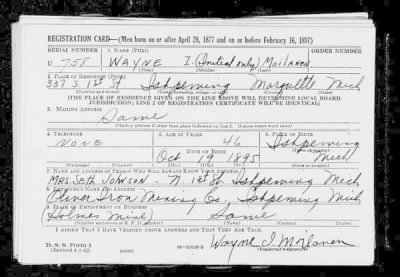 REGISTRATION CARD—(Men born on or after April 28, 1877 and on or before February 16, 1897)
SERIAL NUMBER 1. NAME (Print)
U 758 WAYNE I. (Initial only) Moilanen
(First) (Middle) (Last)
2. PLACE OF RESIDENCE (Print)
337 S. 1st St Ishpeming Marquette Mich
[THE PLACE OF RESIDENCE GIVEN ON THE LINE ABOVE WILL DETERMINE LOCAL BOARD
JURISDICTION; LINE 2 OF REGISTRATION CERTIFICATE WILL BE IDENTICAL]
3. MAILING ADDRESS
Same
[Mailing address if other than place indicated on line 2. If same insert word same]
4. TELEPHONE 5. AGE IN YEARS 6. PLACE OF BIRTH
NONE 46 Ishpeming
DATE OF BIRTH
Oct 19 1895 Mich
(Exchange) (Number) (Mo.) (Day) (Yr.) (State or country)
7. NAME AND ADDRESS OF PERSON WHO WILL ALWAYS KNOW YOUR ADDRESS
MRS. SETH — N. 1st St Ishpeming Mich
8. EMPLOYER'S NAME AND ADDRESS
Oliver Iron Mining Co. Ishpeming Mich
9. PLACE OF EMPLOYMENT OR BUSINESS
Holmes Mine Same
(Number and street or R. F. D. number) (Town) (County) (State)
I AFFIRM THAT I HAVE VERIFIED ABOVE ANSWERS AND THAT THEY ARE TRUE.
D. S. S. Form 1
(Revised 4-1-42)
Wayne I. Moilanen
(Registrant's signature)